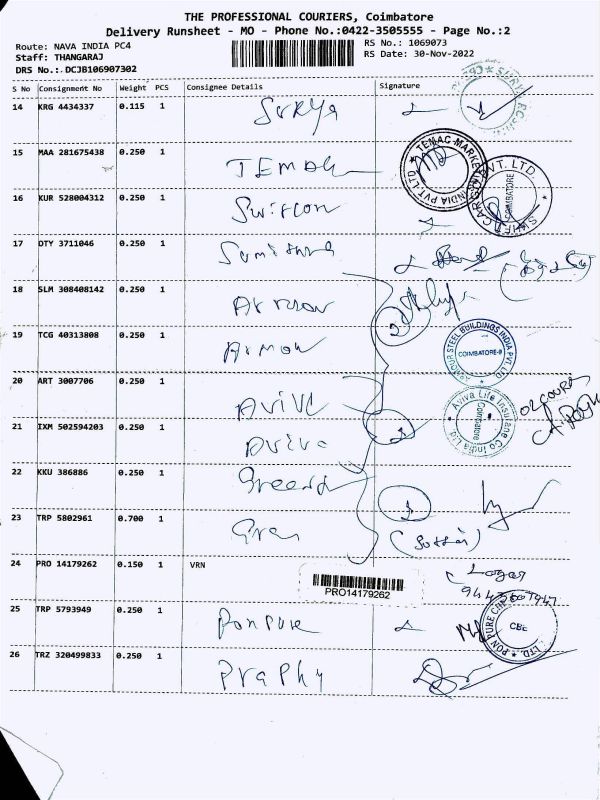 THE PROFESSIONAL COURIERS, Coimbatore
Delivery Runsheet - MO - Phone No.:0422-3505555 - Page No.:2
Route: NAVA INDIA PC4
RS No.: 1069073
Staff: THANGARAJ
RS Date: 30-Nov-2022
DRS No.:.DCJB106907302
S No Consignment No Weight PCS Consignee Details Signature
14 KRG 4434337 0.115 1 Surya
15 MAA 281675438 0.250 1 TEMAC
TEMAC MARKE INDIA PVT. LTD
16 KUR 528004312 0.250 1
PVT. LTD. COIMBATORE
17 DTY 3711046 0.250 1
18 SLM 308408142 0.250 1
19 TCG 40313808 0.250 1
STEEL BUILDINGS INDIA PVT LTD
COIMBATORE-9
20 ART 3007706 0.250 1 AVIVA
Aviva Life Insurance Co India Ltd.
Coimbatore
21 IXM 502594203 0.250 1 Aviva
22 KKU 386886 0.250 1
23 TRP 5802961 0.700 1
24 PRO 14179262 0.150 1 VRN
PRO14179262
25 TRP 5793949 0.250 1 Ponpure
PON PURE LTD.
CBE
26 TRZ 320499833 0.250 1 Praphy